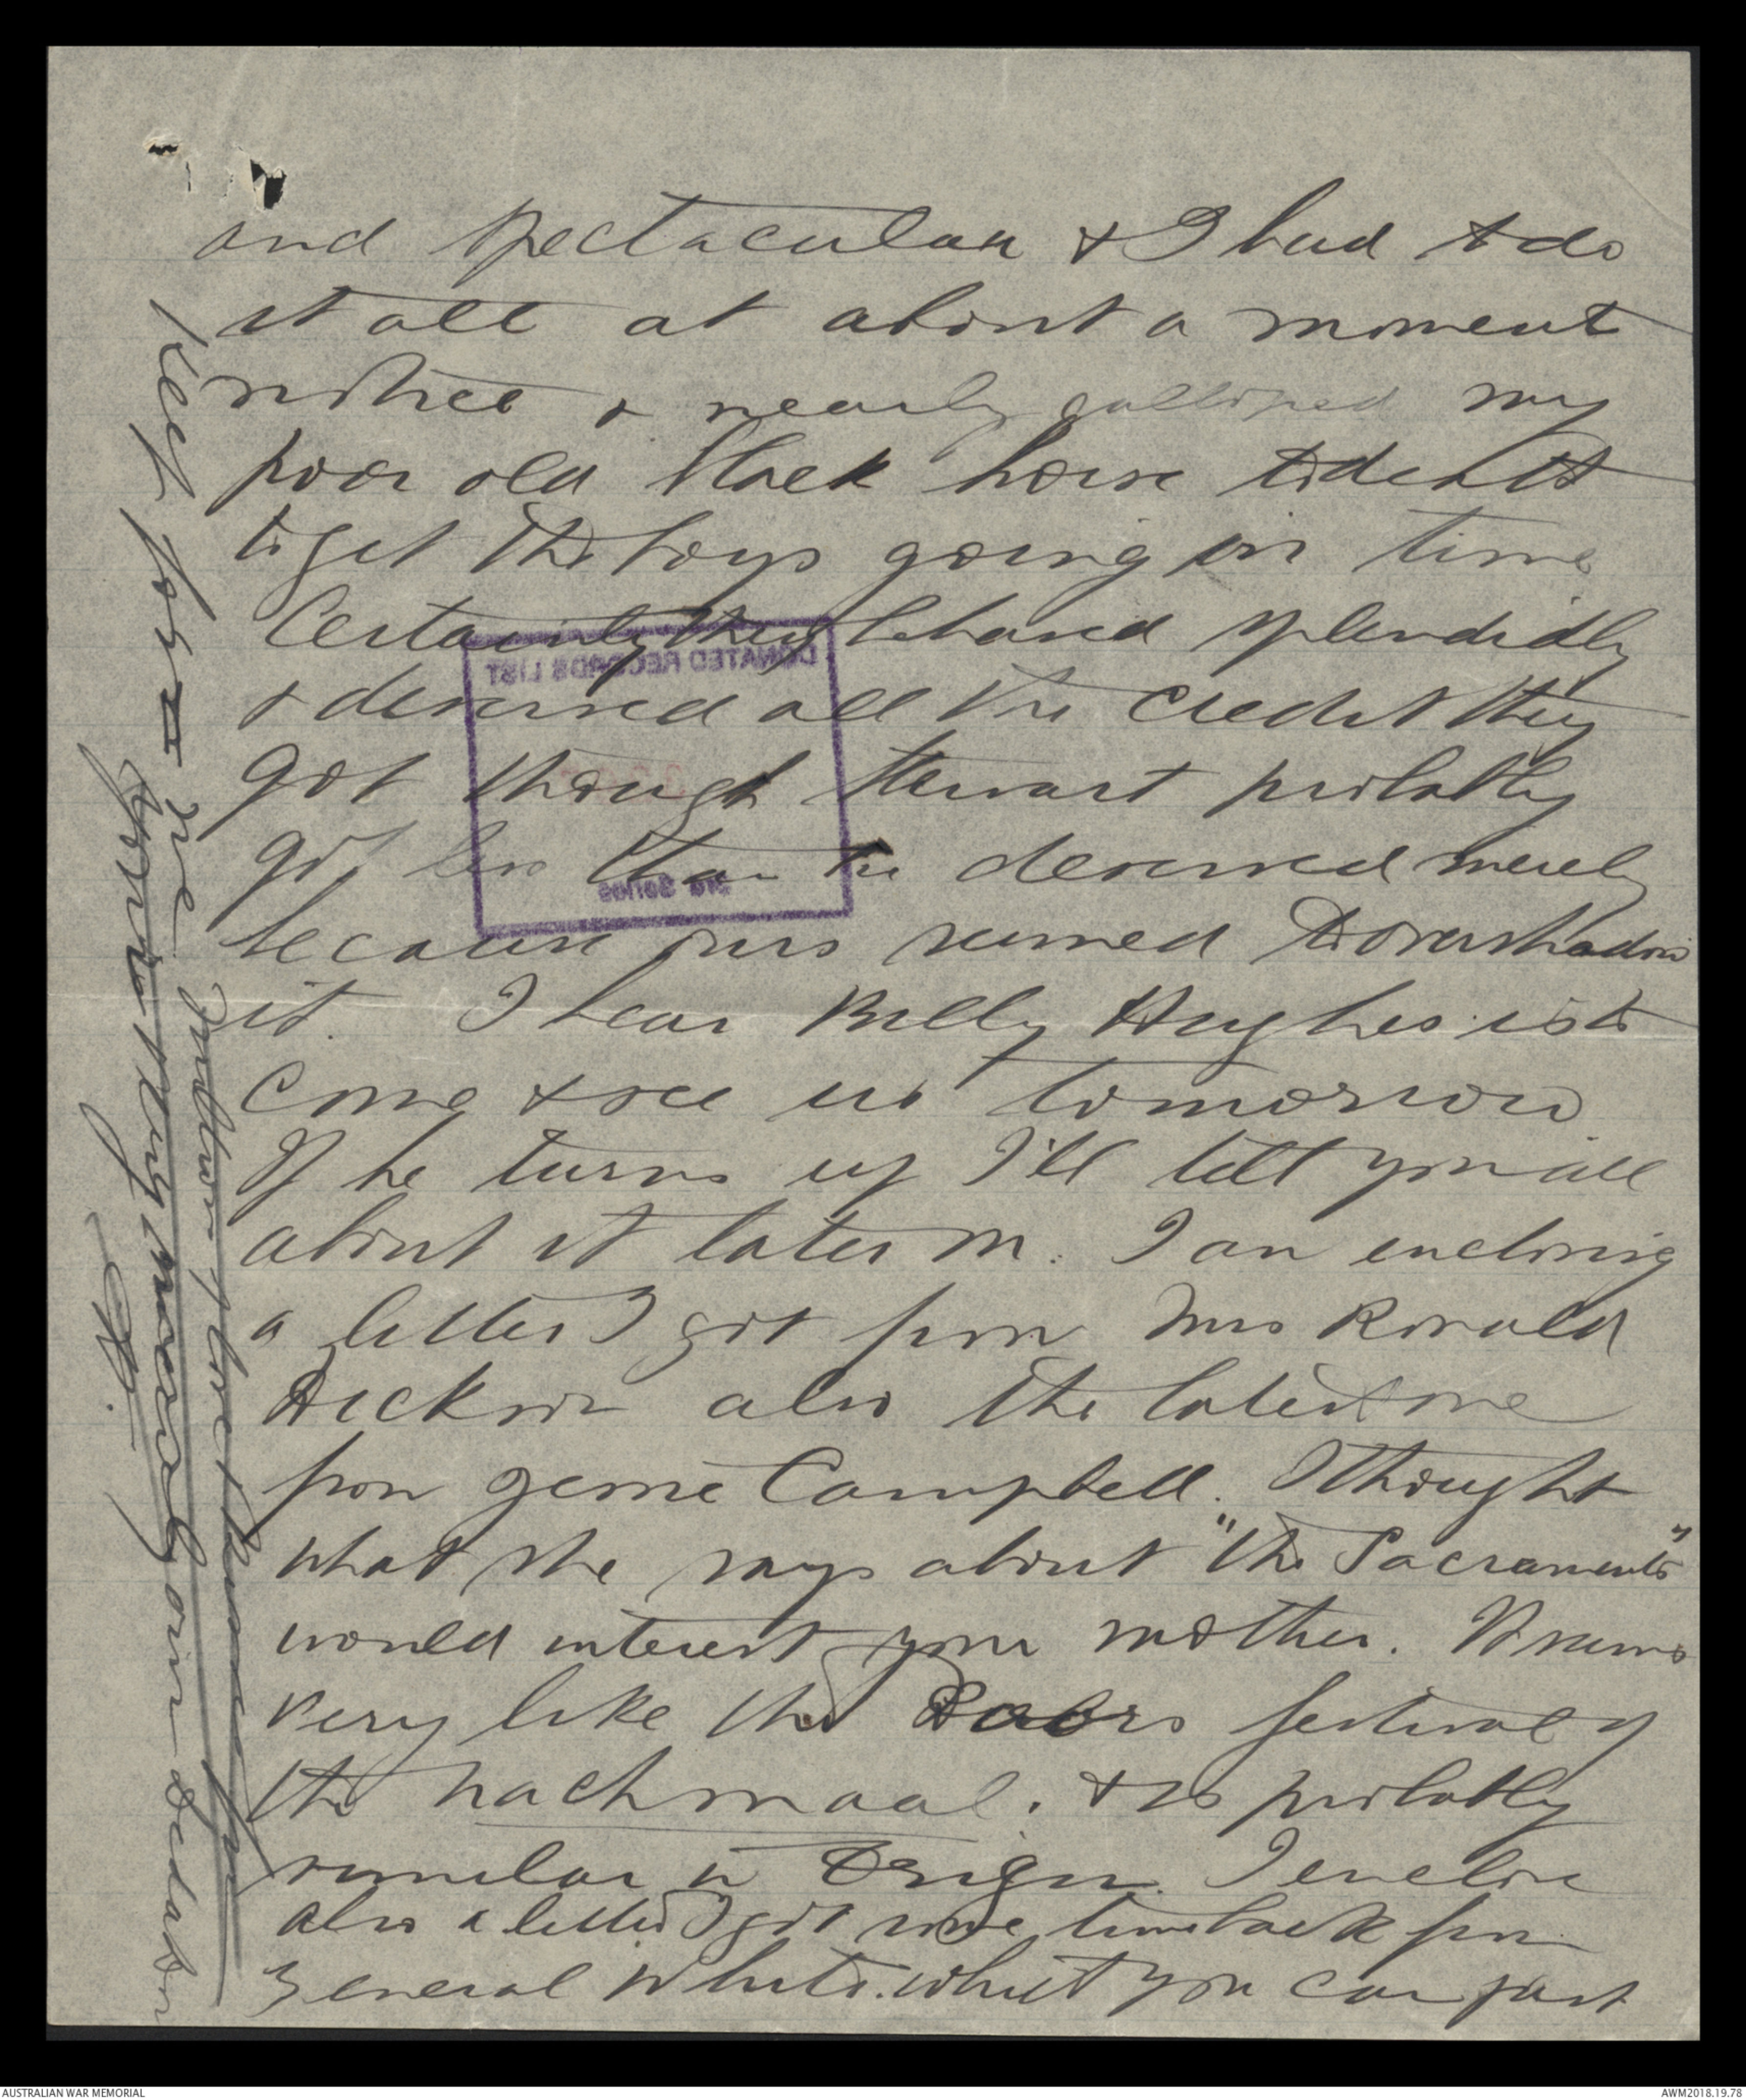 and spectacular & I had to do
it all at about a moment
notice & nearly galloped my
poor old black horse to death
to get the boys going in time
Certainly they behaved splendidly
& deserved all the credit they
got though Stewart probably
got less than he deserved merely
because ours seemed to overshadow
it. I hear Billy Hughes is to
come & see us tomorrow
If he turns up I'll tell you all
about it later on. I am enclosing
a letter I got from Mrs Ronald
Dickson also the latest one
from Jennie Campbell. I thought
what she says about "the Sacraments"
would interest your mother. It seems
very like the Boers festival of
the nachmaal. & is probably
similar in origin. I enclose
also a letter I got some time back from
General White. which you can just
keep for me
Your very own
DONATED RECORDS LIST
Series
AUSTRALIAN WAR MEMORIAL
AWM2018.19.78